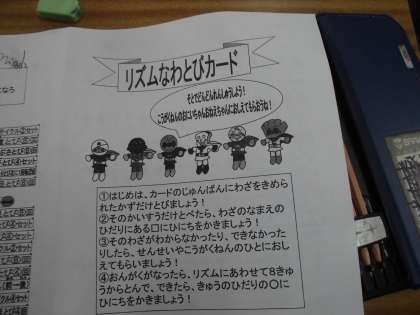 リズムなわとびカード
そとでどんどんれんしゅうしよう！
こうがくねんのおにいちゃんおねえちゃんにおしえてもらおうね！
①はじめは、カードのじゅんばんにわざをきめら
れたかずだけとびましょう！
②そのかいすうだけとべたら、わざのなまえの
ひだりにある口にひにちをかきましょう！
③そのわざがわからなかったり、できなかった
りしたら、せんせいやこうがくねんのひとにおし
えてもらいましょう！
④おんがくがなったら、リズムにあわせて8きゅ
うからとんで、できたら、きゅうのひだりの〇に
ひにちをかきましょう！